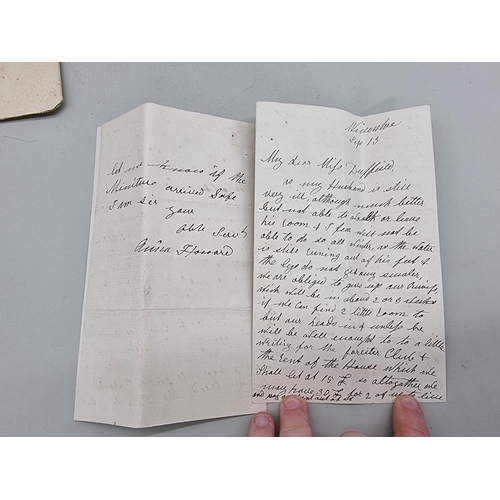 let me know if the
Miniture arrived Safe
I am Sir
your
Obt Servt
Howard
Sep 13
My dear Miss Duffield,
as my Husband is still
very ill although much better
but not able to or leave
his room & I fear will not be
able to do so all Winter, as the water
is still runing out of his feet &
the legs do not get any smaler,
we are obliged to give up our
wich will be in about 2 or 3
if we can find 2 little room to
but our heads in & unless he
will be well enught to do a little
writing for the forester Club &
the rent of the House which we
Shall let at 15 £ so altogether we
may have 30 £ for 2 of us to live
and pay out of it